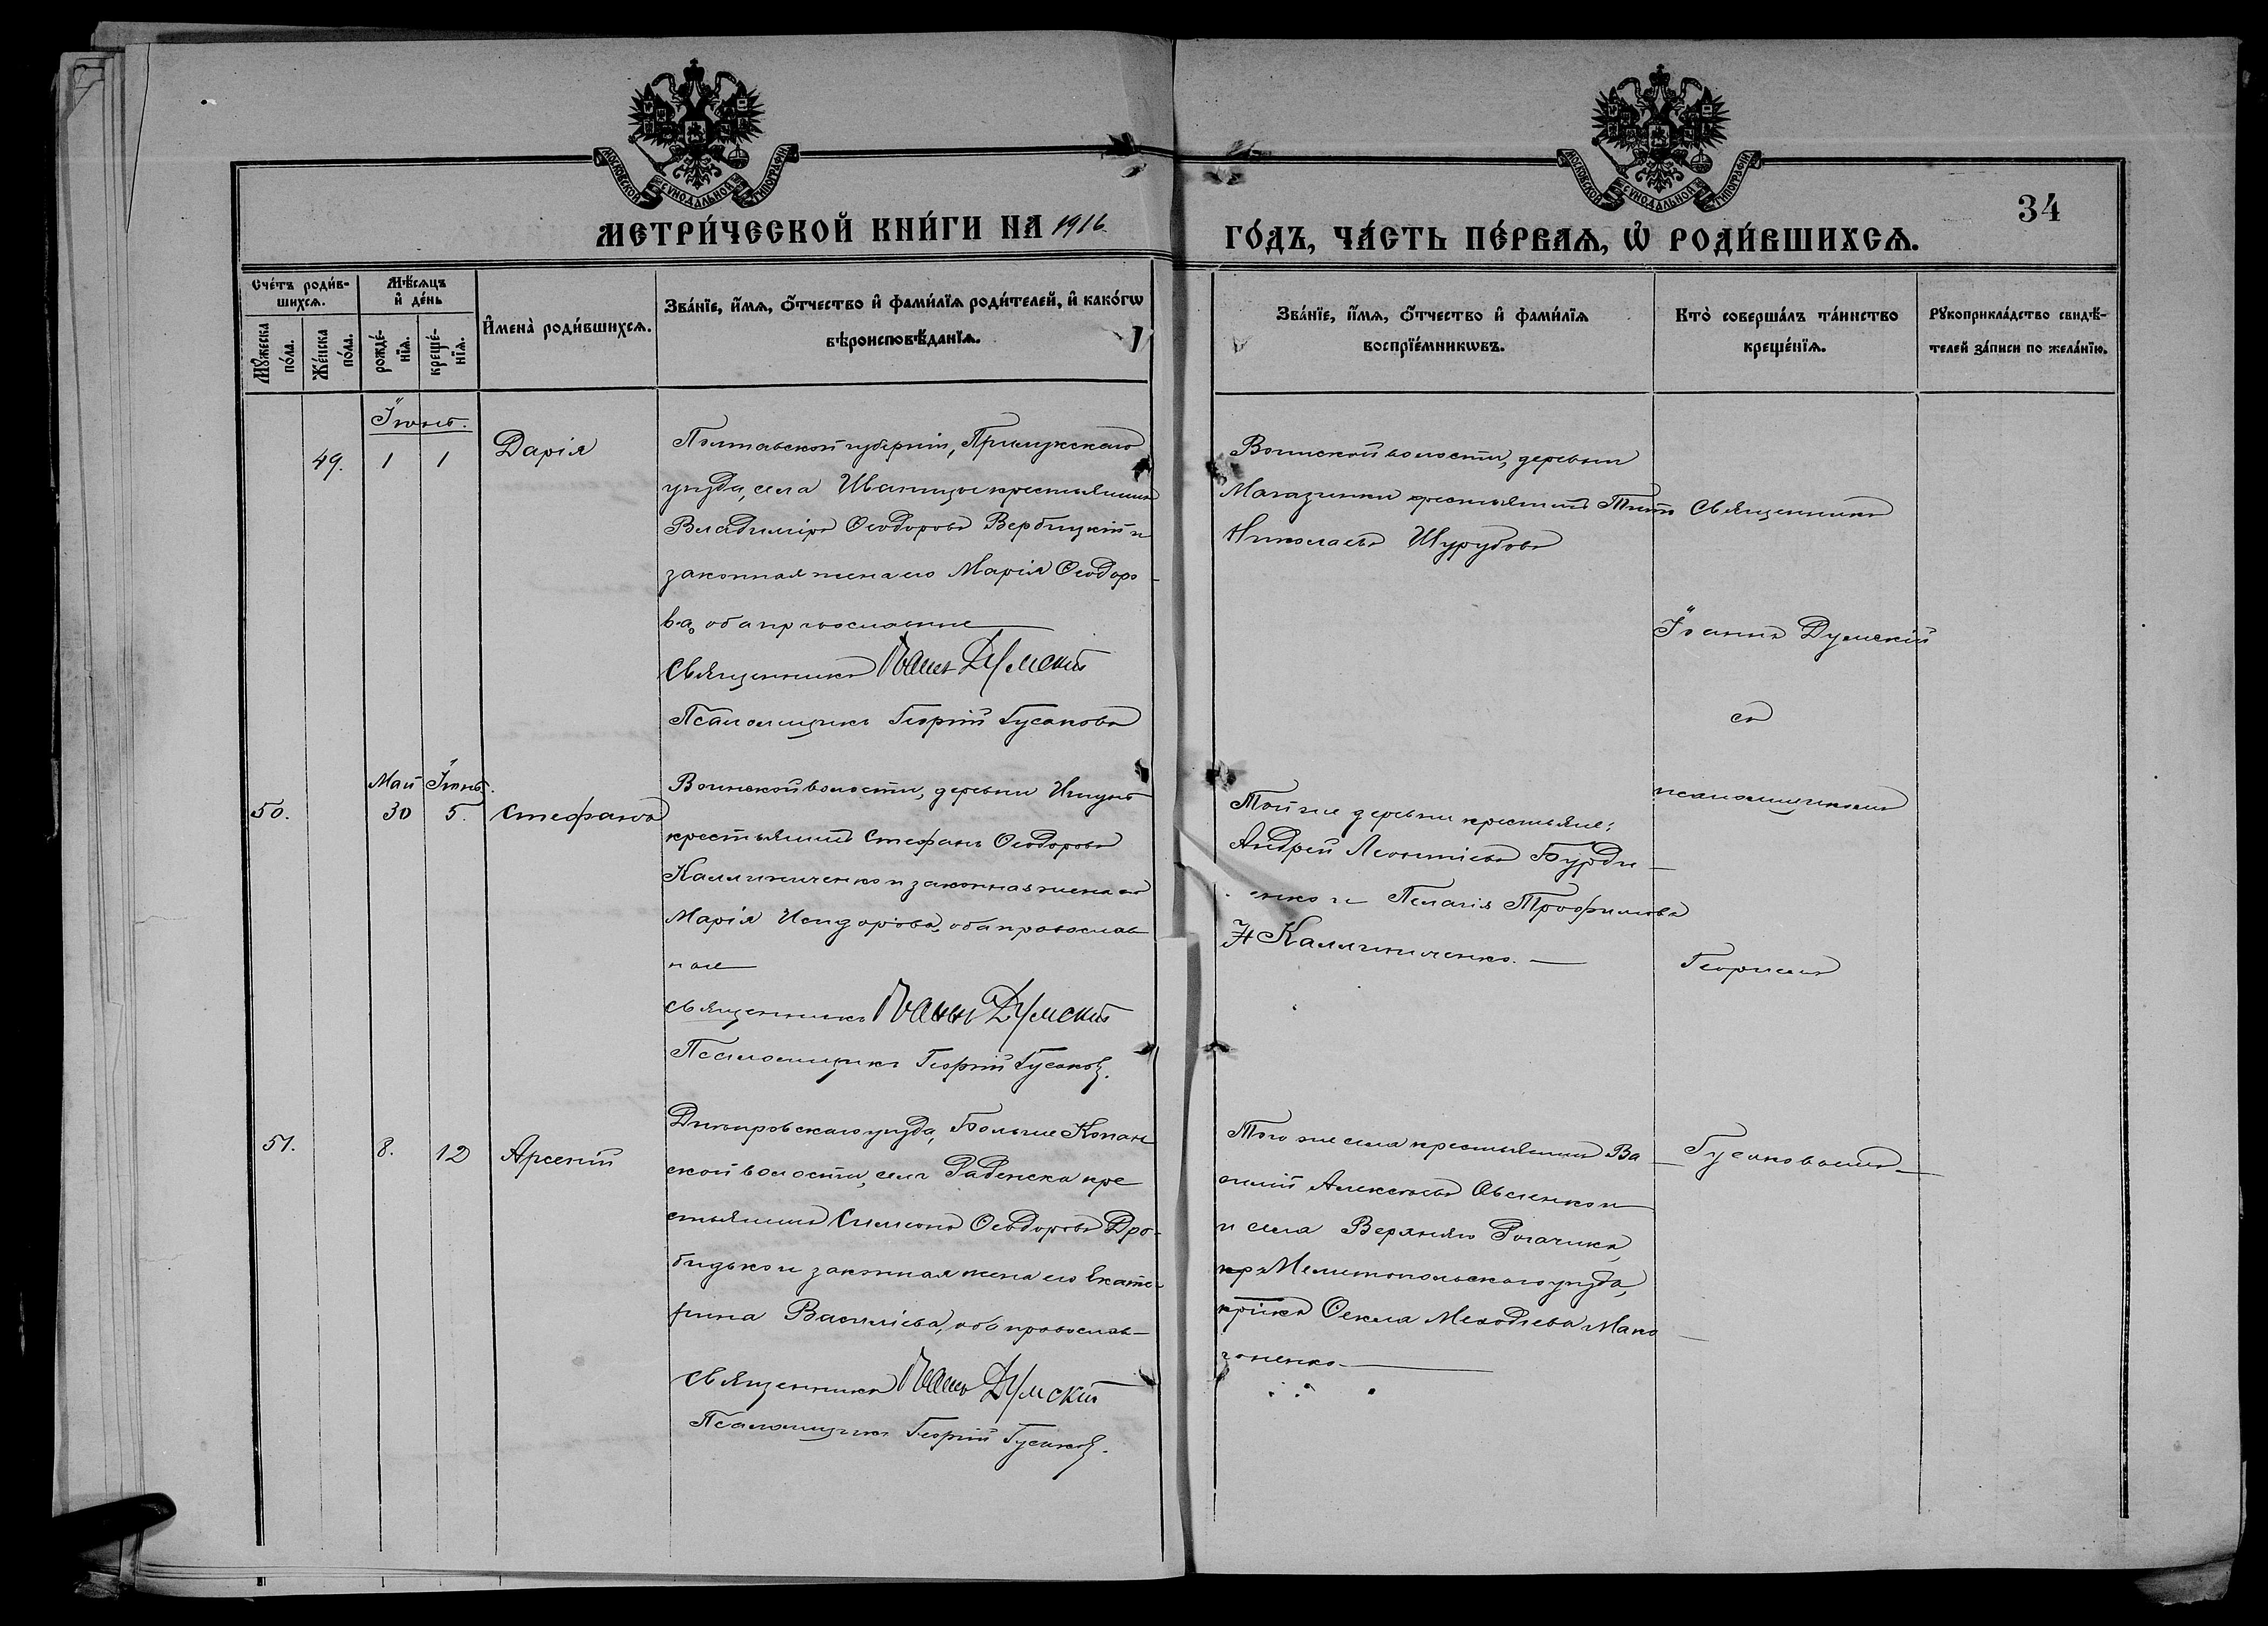 МОСКОВСКОЙ СѴНОДАЛЬНОЙ ТИПОГРАФІИ
МОСКОВСКОЙ СѴНОДАЛЬНОЙ ТИПОГРАФІИ
34
МЕТРИ́ЧЕСКОЙ КНИ́ГИ НА 1916.
ГО́ДЪ, ЧА́СТЬ ПЕ́РВАѦ, Ѡ РОДИ́ВШИХСѦ.
Сче́тъ роди́в-
шихсѧ.
Мѣ́сѧцъ
и҆ де́нь
Мꙋ́жеска
по́ла.
Же́нска
по́ла.
рожде́-
нїѧ.
креще́-
нїѧ.
И҆мена̀ роди́вшихсѧ.
Зва́нїе, и҆́мѧ, ѻ҆́тчество и҆ фами́лїѧ роди́телей, и҆ како́гѡ
вѣроисповѣ́данїѧ.
Зва́нїе, и҆́мѧ, ѻ҆́тчество и҆ фами́лїѧ
воспрїе́мникѡвъ.
Кто̀ соверша́лъ та́инство
креще́нїѧ.
Рꙋкоприкла́дство свидѣ́-
телей за́писи по жела́нїю.
Іюнь.
49. 1 1 Дарія
Полтавской губерніи, Прилукскаго
уѣзда, села Иваницы крестьянинъ
Владиміръ Ѳеодоровъ Вербицкій и
законная жена его Марія Ѳеодоро-
ва, оба православные
Священникъ Іоаннъ Думскій
Псаломщикъ Георгій Гусаковъ
Воинской волости, деревни
Магазинки крестьянинъ Титъ
Николаевъ Шурубовъ
Священникъ
Іоаннъ Думскій
съ
псаломщикомъ
Георгіемъ
Гусаковымъ
Май Іюнь.
50. 30 5. Стефанъ
Воинской волости, деревни Ишунь
крестьянинъ Стефанъ Ѳеодоровъ
Каллиниченко и законная жена его
Марія Исидорова, оба православ
ные
Священникъ Іоаннъ Думскій
Псаломщикъ Георгій Гусаковъ.
Той же деревни крестьяне:
Андрей Леонтіевъ Бурди-
енко и Пелагія Трофимова
Каллиниченко.
51. 8. 12 Арсеній
Днѣпровскаго уѣзда, Больше Копан
ской волости, села Раденска кре
стьянинъ Симеонъ Ѳеодоровъ Дро-
бидько и законная жена его Екате-
рина Василіева, оба православ-
Священникъ Іоаннъ Думскій
Псаломщикъ Георгій Гусаковъ.
Того же села крестьянинъ Ва-
силій Алексѣевъ Овсіенко и
и села Верхняго Рогачика,
Мелитопольскаго уѣзда,
кр-ка Ѳекла Меѳодіева Мако-
гоненко